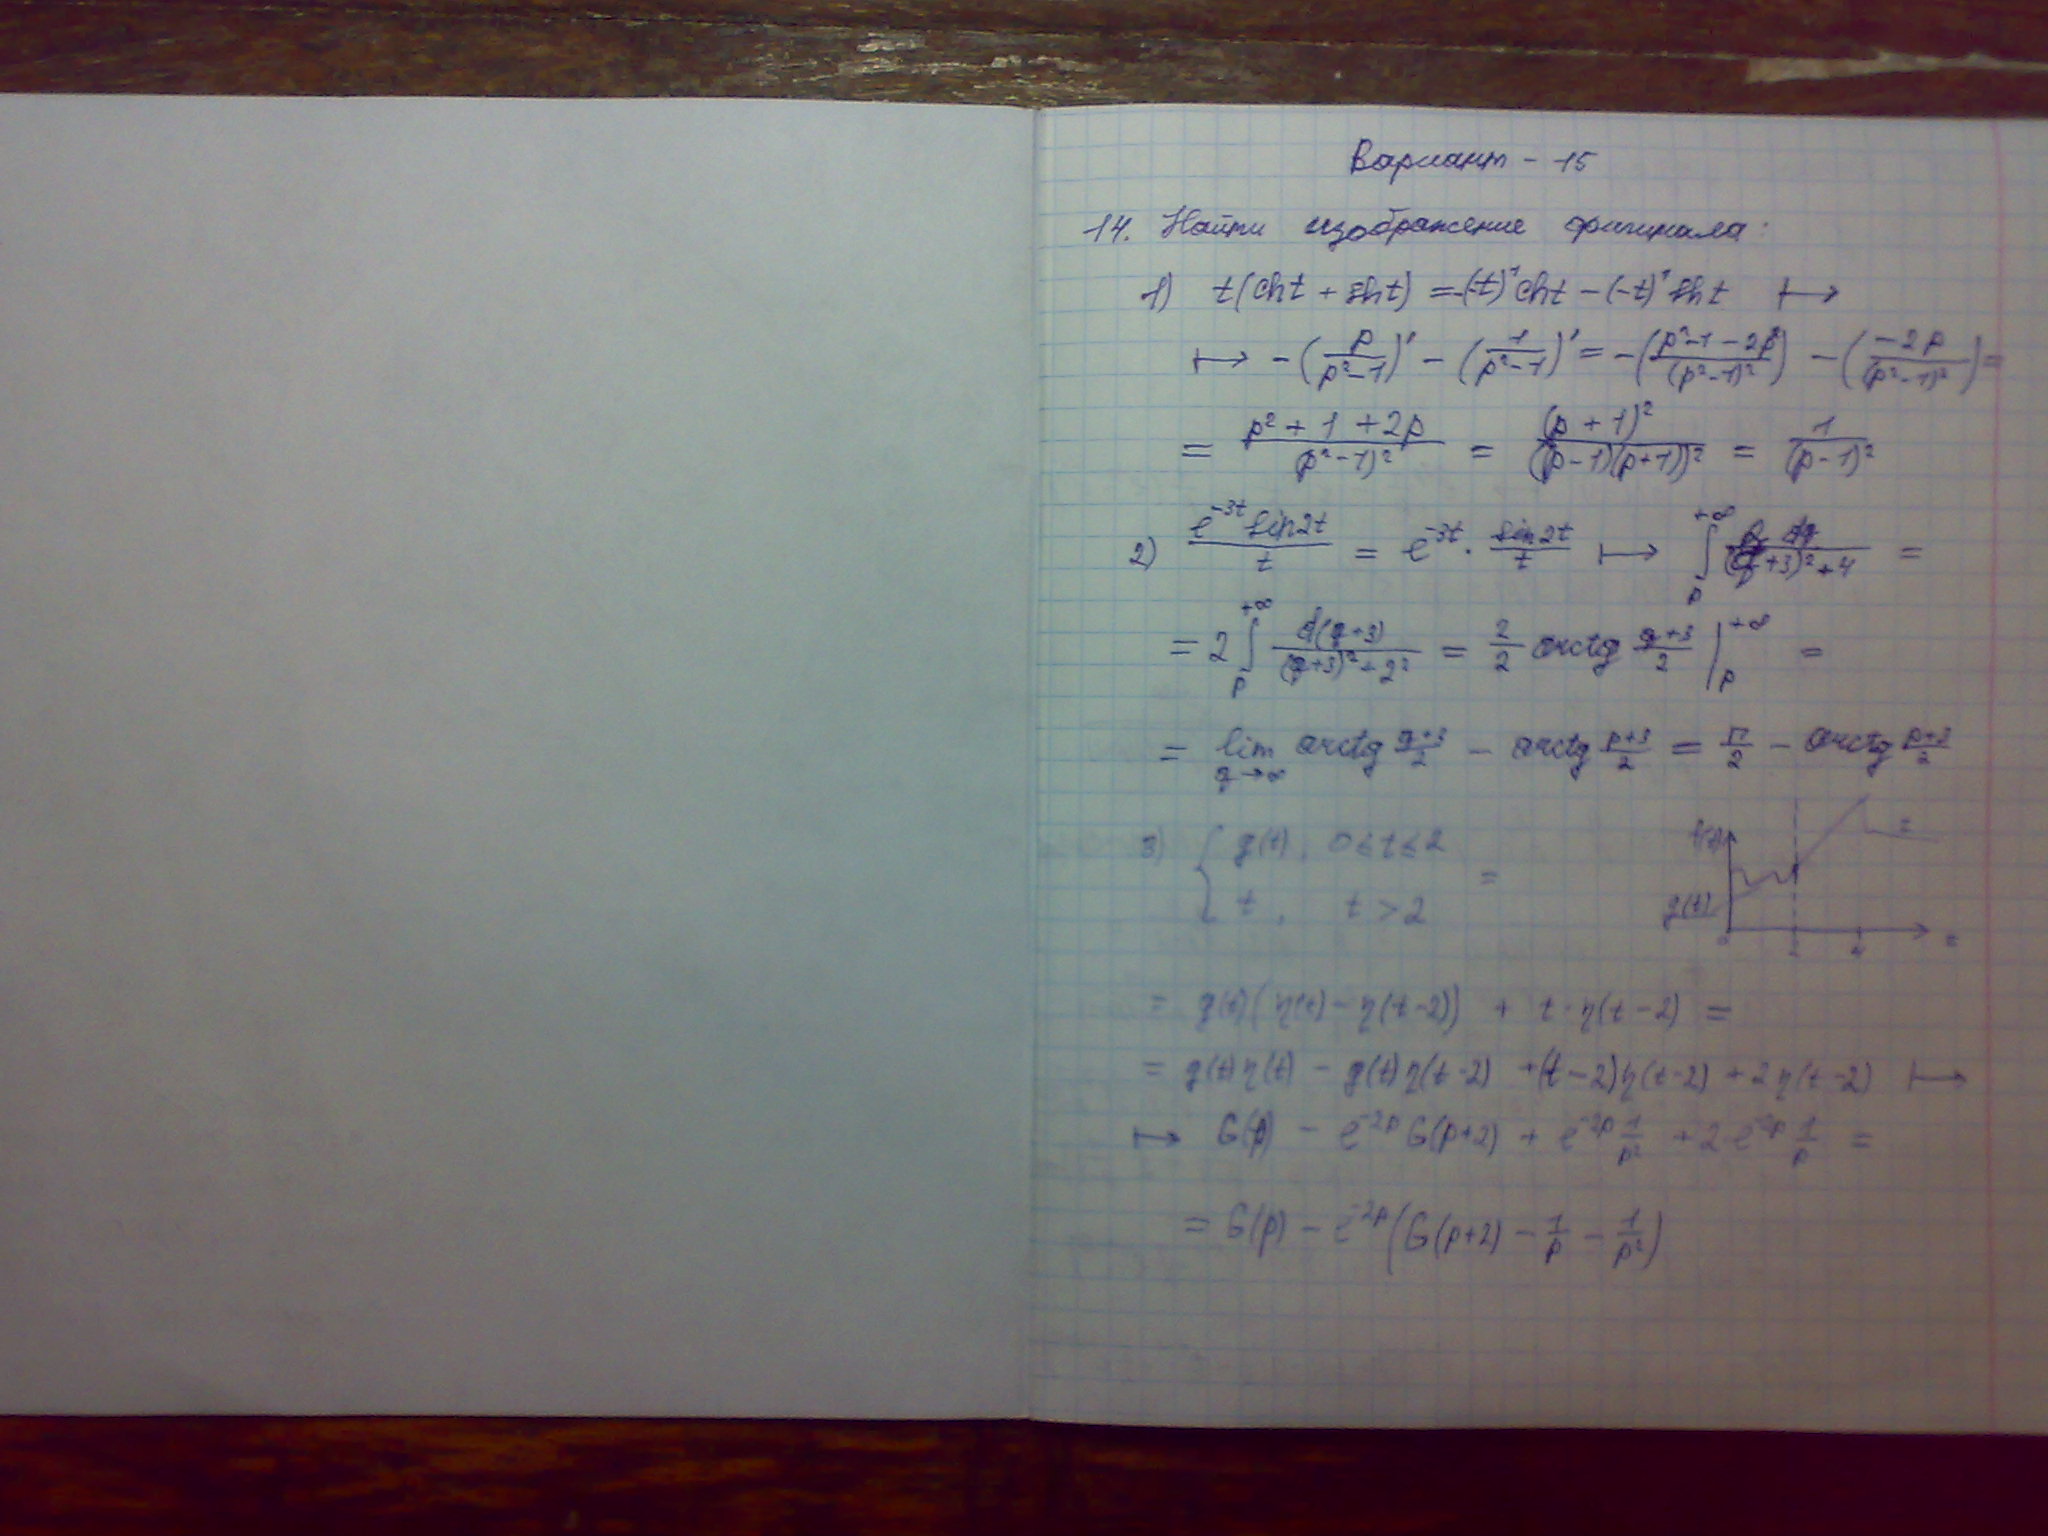 Вариант - 15
14. Найти изображение оригинала:
1) t(cht + sht) = -(-t)¹cht - (-t)¹sht ↦
↦ -(p/(p²-1))' - (1/(p²-1))' = -((p²-1-2p²)/(p²-1)²) - (-2p/(p²-1)²) =
= (p²+1+2p)/(p²-1)² = (p+1)²/((p-1)(p+1))² = 1/(p-1)²
2) e^(-3t) sin2t / t = e^(-3t) · sin2t/t ↦ ∫_p^(+∞) 2 dq/((q+3)²+4) =
= 2 ∫_p^(+∞) d(q+3)/((q+3)²+2²) = 2/2 arctg (q+3)/2 |_p^(+∞) =
= lim_(q→∞) arctg (q+3)/2 - arctg (p+3)/2 = π/2 - arctg (p+3)/2
3) { g(t), 0≤t≤2 =
t, t>2
f(t)
g(t)
= g(t)(η(t) - η(t-2)) + t·η(t-2) =
= g(t)η(t) - g(t)η(t-2) + (t-2)η(t-2) + 2η(t-2) ↦
↦ G(p) - e^(-2p) G(p+2) + e^(-2p) 1/p² + 2 e^(-2p) 1/p =
= G(p) - e^(-2p) (G(p+2) - 1/p - 1/p²)